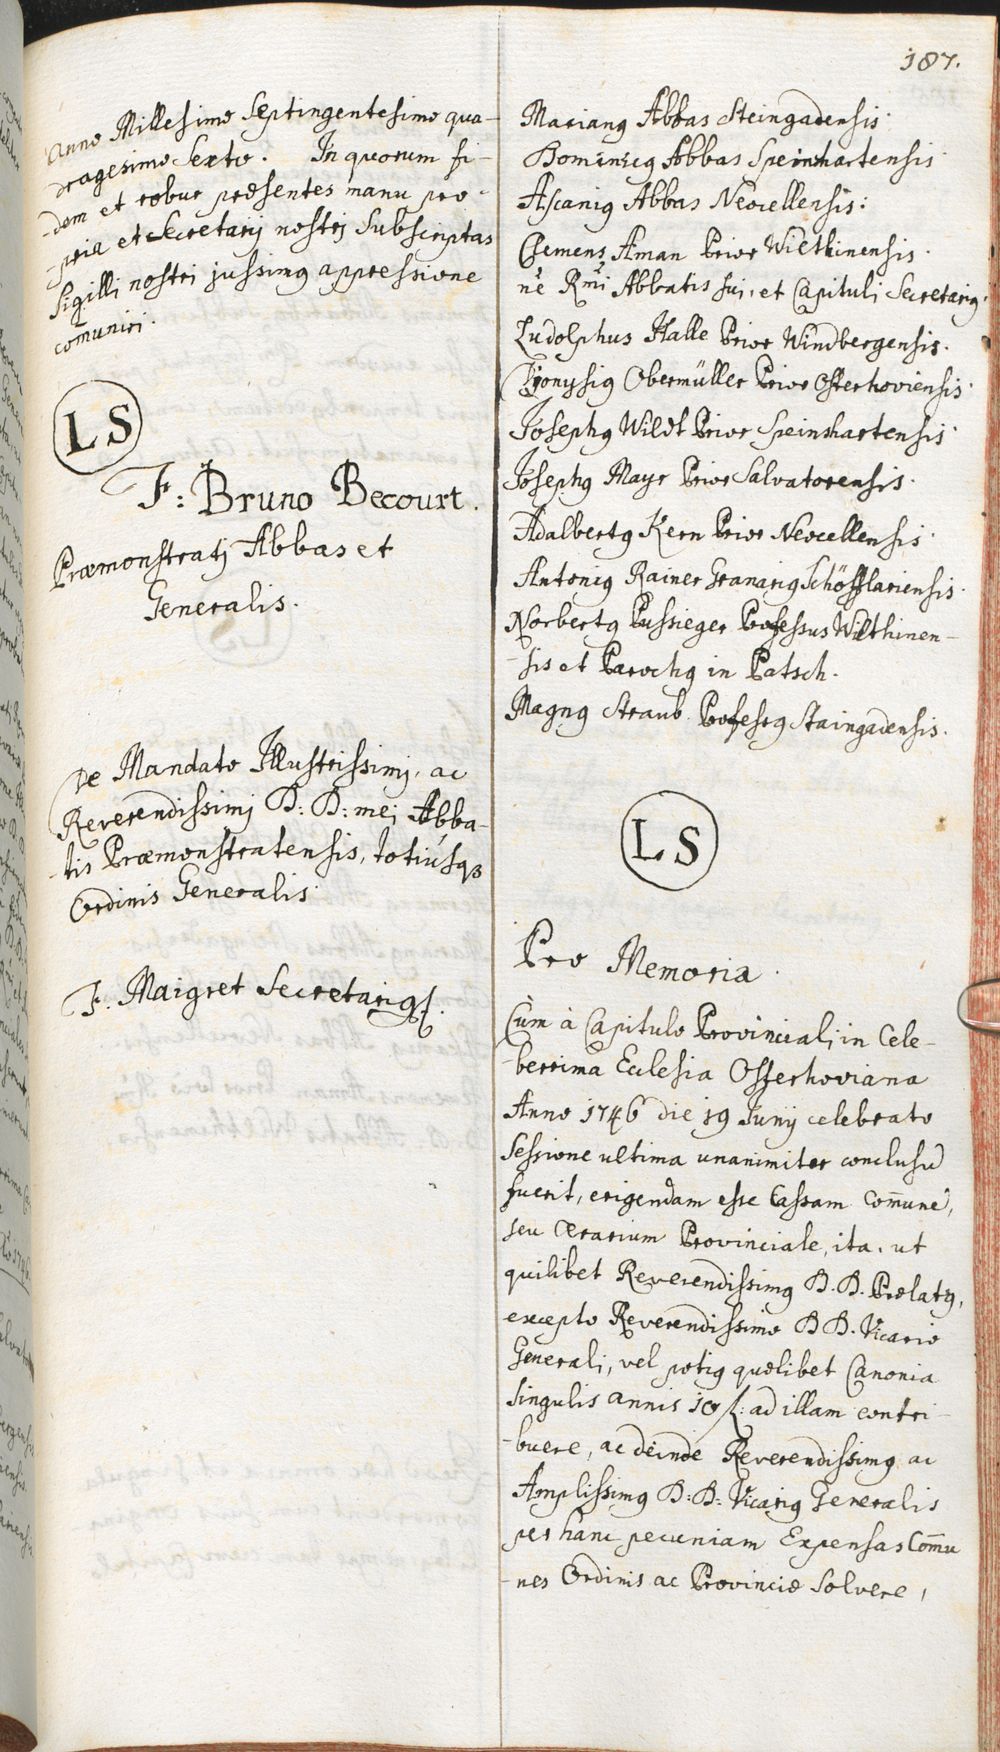 187.
Anno Millesimo Septingentesimo qua-
dragesimo Sexto. In quorum fi-
-dem et robur præsentes manu pro-
-pria et Secretarij nostrj Subscriptas
Sigilli nostri jussimꝰ appressione
com̄uniri.
LS
F: Bruno Becourt.
Præmonstratj Abbas et
Generalis.
De Mandato Illustrissimj, ac
Reverendissimj D: D: mej Abba-
-tis Præmonstratensis, totiúsqꝫ
Ordinis Generalis.
F. Maigret Secretariꝰ.
Marianꝰ Abbas Steingadensis.
Dominicꝰ Abbas Speinshartensis
Ascaniꝰ Abbas Neocellensis.
Clemens Aman Prior Wilthinensis.
nē Rmi Abbatis sui, et Capituli Secretariꝰ.
Ludolphus Halle Prior Windbergensis.
Dionysiꝰ Obermüller Prior Osterhoviensis.
Josephꝰ Wildt Prior Speinshartensis.
Josephꝰ Mayr Prior Salvatorensis.
Adalbertꝰ Kern Prior Neocellensis.
Antoniꝰ Rainer Granariꝰ Schöfftlariensis.
Norbertꝰ Pussieger Professus Wilthinen-
-sis et Parochꝰ in Patsch.
Magnꝰ Straub Professꝰ Staingadensis.
LS
Pro Memoria.
Cùm à Capitulo Provinciali, in Cele-
-berrima Ecclesia Osterhoviana
Anno 1746 die 19 Junij celebrato
Sessione ultima unanimiter conclusū
fuerit, erigendam esse Cassam Com̄unē,
seu Ærarium Provinciale, ita, ut
quilibet Reverendissimꝰ D. D. Prælatꝰ,
excepto Reverendissimo D D. Vicario
Generali, vel potiꝰ quælibet Canonia
singulis annis 10 fl: ad illam contri-
-buere, ac deinde Reverendissimꝰ ac
Amplissimꝰ D: D: Vicariꝰ Generalis
per hanc pecuniam Expensas Com̄u
-nes Ordinis ac Provinciæ solvere,